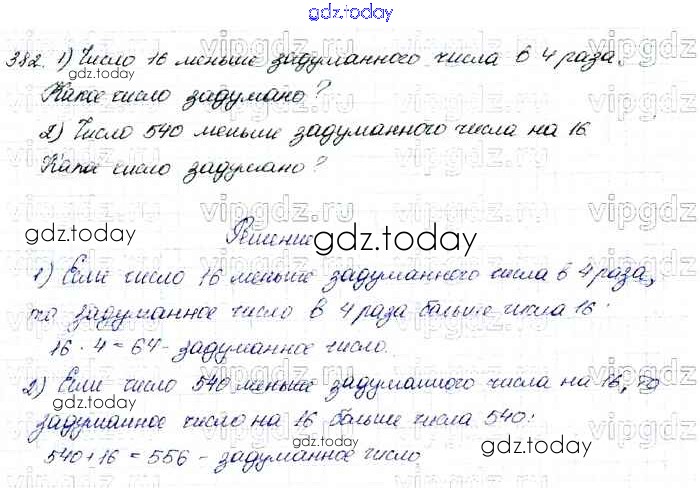 gdz.today
382. 1) Число 16 меньше задуманного числа в 4 раза.
gdz.today
Какое число задумано?
2) Число 540 меньше задуманного числа на 16.
Какое число задумано?
vipgdz.ru vipgdz.ru vipgdz.ru
gdz.today
Решение
gdz.today
1) Если число 16 меньше задуманного числа в 4 раза,
то задуманное число в 4 раза больше числа 16:
16 · 4 = 64 - задуманное число.
2) Если число 540 меньше задуманного числа на 16, то
gdz.today
задуманное число на 16 больше числа 540:
gdz.today
540 + 16 = 556 - задуманное число